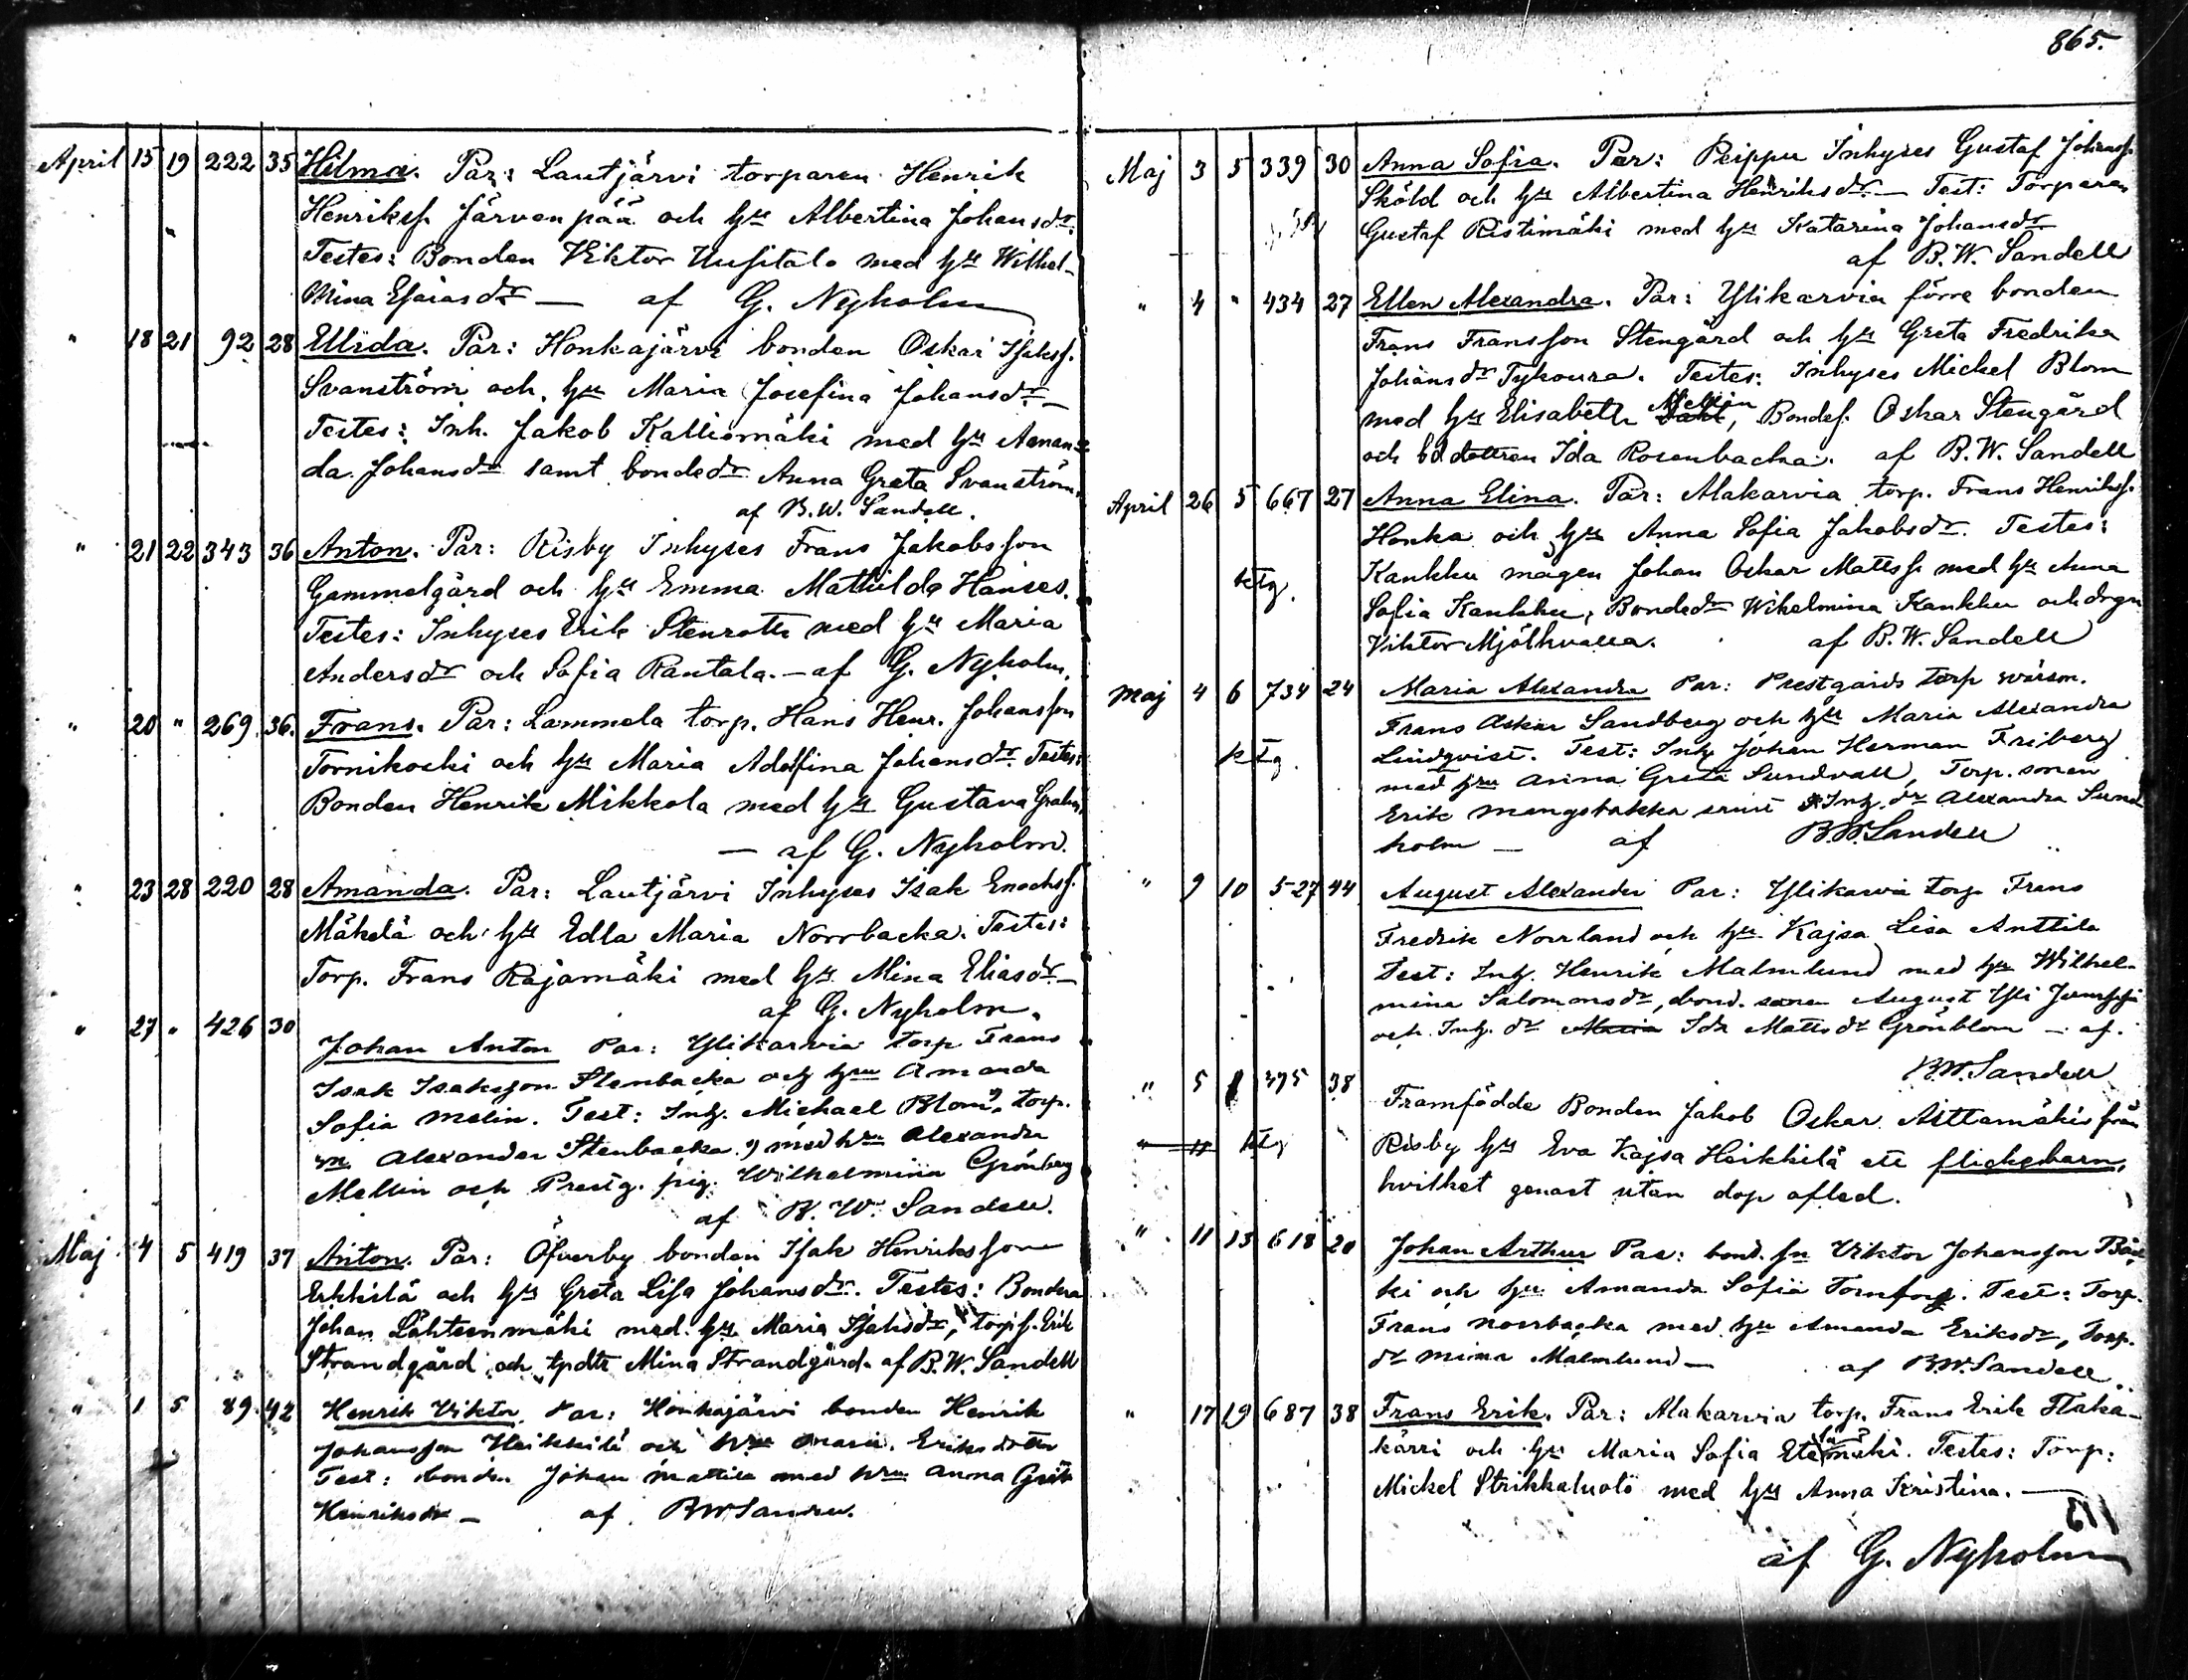 865.
April 15 19 222 35 Hilma. Par: Lautjärvi torparen Henrik
Henrikss. Järvenpää och hu Albertina Johansdr.
Testes: Bonden Viktor Uusitalo med hu Wilhel-
mina Esaiasdr — af G. Nyholm
" 18 21 92 28 Ellida. Par: Honkajärvi bonden Oskar Isakss.
Svanström och hu Maria Josefina Johansdr —
Testes: Inh. Jakob Kalliomäki med hu Aman-
da Johansdr samt bondedr Anna Greta Svanström.
af B. W. Sandell.
" 21 22 343 36 Anton. Par: Risby Inhyses Frans Jakobsson
Gammelgård och hu Emma Mathilda Hanses.
Testes: Inhyses Erik Stenroth med hu Maria
Andersdr och Sofia Rantala. — af G. Nyholm.
" 20 " 269 36. Frans. Par: Lammela torp. Hans Henr. Johansson
Tornikoski och hu Maria Adolfina Johansdr. Testes:
Bonden Henrik Mikkola med hu Gustava
— af G. Nyholm.
" 23 28 220 28 Amanda. Par: Lautjärvi Inhyses Isak Enochss.
Mäkelä och hu Edla Maria Norrbacka. Testes:
Torp. Frans Rajamäki med hu Mina Eliasdr —
af G. Nyholm.
" 27 " 426 30 Johan Anton Par: Ylikarvia torp Frans
Isak Isaksson Stenbacka och hru Amanda
Sofia Melin. Test: Inh. Michael Blom, torp.
sn Alexander Stenbacka med hru Alexandra
Mellin och Prestg. pig. Wilhelmina Grönberg
af B. W. Sandell.
Maj 4 5 419 37 Anton. Par: Öfverby bonden Isak Henriksson
Erkkilä och hu Greta Lisa Johansdr. Testes: Bonden
Johan Lähteenmäki med hu Maria Isaksdr, torp.s. Erik
Strandgård och tpdtr Mina Strandgård. af B. W. Sandell
" 1 5 89 42 Henrik Viktor Par: Honkajärvi bonden Henrik
Johansson Heikkilä och hru Maria Eriksdotter
Test: bonden Johan Mattila med hru Anna Greta
Henriksdr — af BW Sandell.
Maj 3 5 339 30 Anna Sofia. Par: Peippu Inhyses Gustaf Johanss.
Sköld och hu Albertina Henriksdr — Test: Torparen
Gustaf Ristimäki med hu Katarina Johansdr
af B. W. Sandell
" 4 " 434 27 Ellen Alexandra. Par: Ylikarvia förre bonden
Frans Fransson Stengård och hu Greta Fredrika
Johansdr Tykoura. Testes: Inhyses Mickel Blom
med hu Elisabeth Mellin, Bondes. Oskar Stengård
och bd dottren Ida Rosenbacka. af B. W. Sandell
April 26 5 667 27 Anna Elina. Par: Alakarvia torp. Frans Henrikss.
Honka och hu Anna Sofia Jakobsdr. Testes:
ktg. Kankku mågen Johan Oskar Mattss. med hu Anna
Sofia Kankku, Bondedr Wihelmina Kankku och drgn
Viktor Mjölkvalla. af B. W. Sandell
Maj 4 6 734 24 Maria Alexandra Par: Prestgårds torp
Frans Oskar Sandberg och hu Maria Alexandra
ktg. Lindqvist. Test: Inh Johan Herman Friberg
med hru Anna Greta Sundvall, Torp. sonen
Erik Mangsbakka samt Inh. dr Alexandra Sund
holm — af B. W. Sandell
" 9 10 527 44 August Alexander Par: Ylikarvia torp Frans
Fredrik Norrland och hu Kajsa Lisa Anttila
Test: Inh. Henrik Malmlund med hu Wilhel-
mina Salomonsdr, bond. sonen August Yli
och Inh. dr Maria Ida Mattsdr Grönblom — af
B. W. Sandell
" 5 375 38 Framfödde Bonden Jakob Oskar Aittamäkis från
ktg Risby hu Eva Kajsa Heikkilä ett flickebarn,
hvilket genast utan dop afled.
" 11 13 618 20 Johan Arthur Par: bond. sn Viktor Johansson
ki och hu Amanda Sofia Tornfors. Test: Torp.
Frans Norrbacka med hu Amanda Eriksdr, Torp.
dr Mina Malmlund — af B. W. Sandell
" 17 19 687 38 Frans Erik. Par: Alakarvia torp. Frans Erik Flaka-
kärri och hu Maria Sofia Etelämäki. Testes: Torp:
Mickel Strikkaluoto med hu Anna Kristina. —
af G. Nyholm